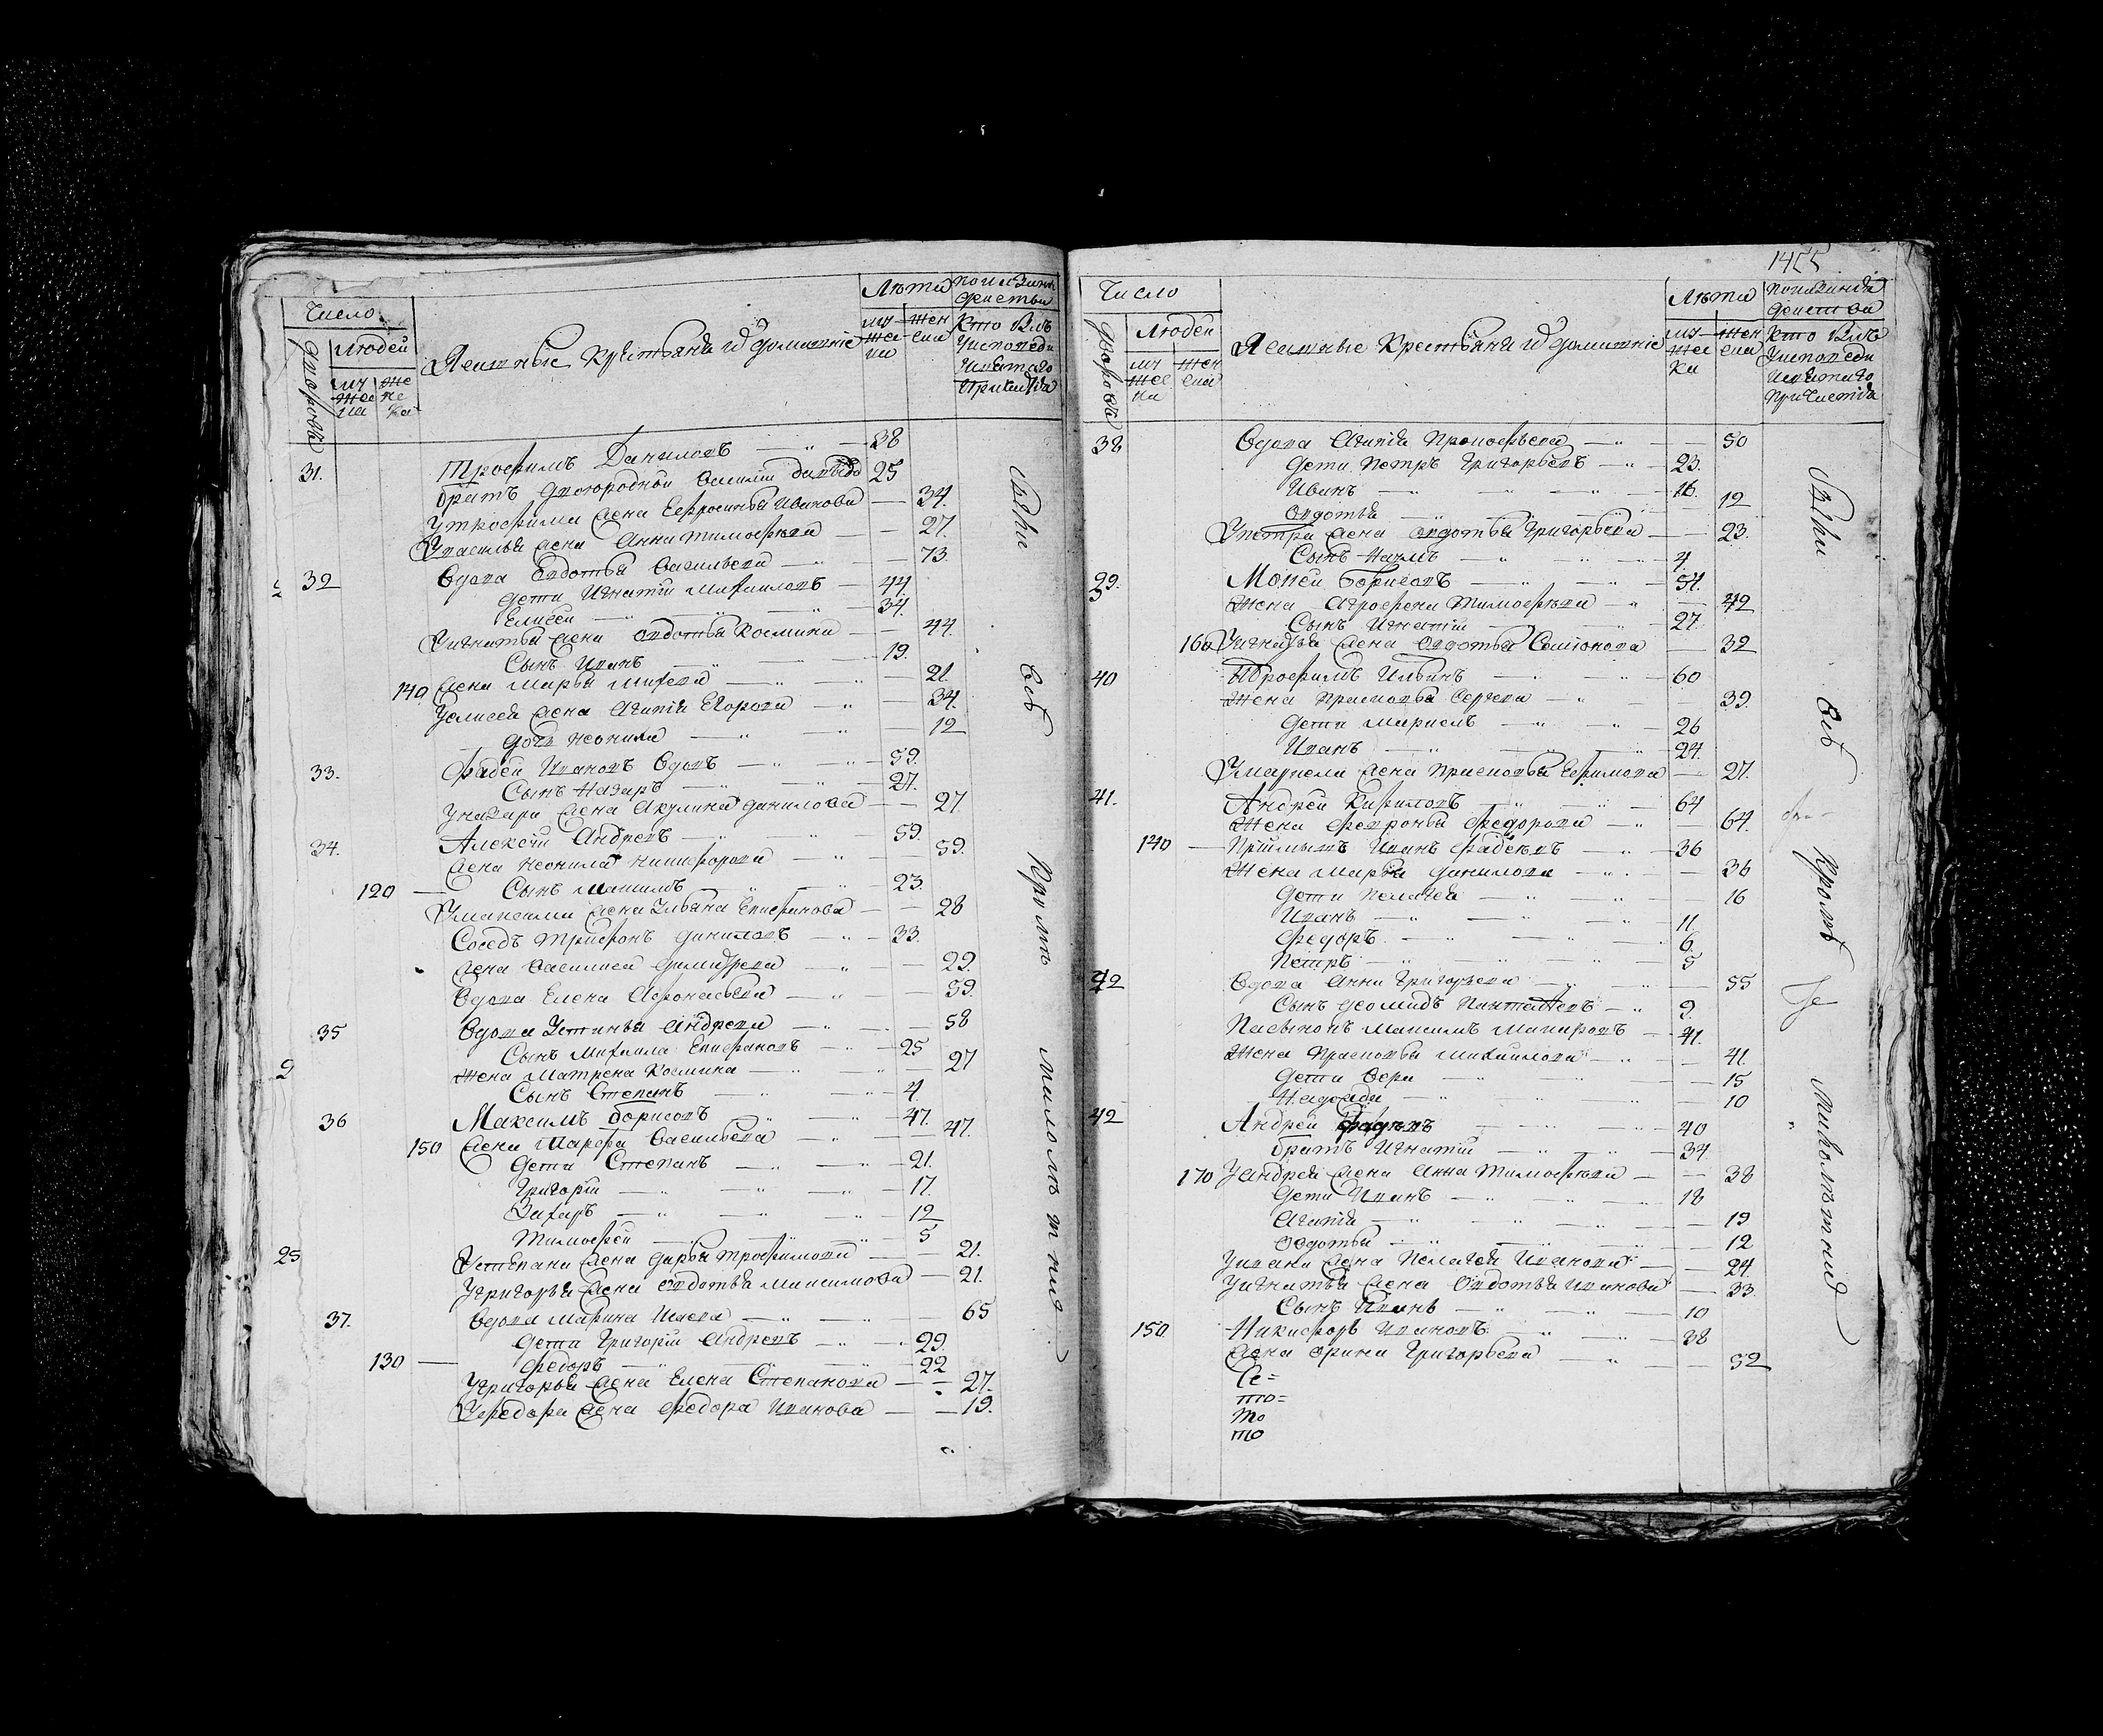 Число
Людей
Дворовъ
муж ска
же нс ка
Ясашные Крестьяне и домашніе
Лѣта
муж ска
жен ска
Показаніе действа
Кто былъ
у исповеди
и святаго
причастія
31. Трофимъ Даниловъ 38
братъ двоюродной Василій Давыдо 25
У трофима жена Ефросинья Иванова 34.
У василья жена Анна Тимофѣева 27.
32 Вдова Евдотья Васильева 73.
дети Игнатій Михаиловъ 44.
Елисей 34.
У игнатья жена Овдотья Козмина 44.
Сынъ Иванъ 19.
140 жена Марья Михеева 21.
У елисея жена Агапія Егорова 34.
дочь Неонила 12
33. Фадей Ивановъ вдовъ 59.
Сынъ Назаръ 27.
У назара жена Акулина Данилова 27
34. Алексей Андреевъ 59.
жена Неонила Никифорова 59.
120 Сынъ Максимъ 23.
У максима жена Ульяна Епифанова 28
Соседъ Трифонъ Даниловъ 33.
жена Василиса Димидрева 29.
Вдова Елена Афонасьева 59.
35 Вдова Устинья Андреева 58
Сынъ Михаила Епифановъ 25
жена Матрена Козмина 27
Сынъ Степанъ 4.
36 Максимъ Борисовъ 47.
150 жена Марфа Васильева 47.
дети Степанъ 21.
Григорій 17.
Захаръ 12
Тимофей 5
У степана жена Дарья Трофимова 21.
У григорья жена Овдотья Максимова 21.
37. Вдова Марина Исаева 65
дети Григорій Андреевъ 29.
130 Федоръ 22
У григорья жена Елена Степанова 27.
У федора жена Федора Иванова 19.
25
2
Сѣи
всѣ
кромѣ
малолѣтних
1455
Число
Людей
Дворовъ
муж ска
жен ска
Ясашные Крестьяне и домашніе
Лѣта
муж ска
жен ска
Показанія
действа
Кто былъ
у исповеди
и святаго
причастія
38 Вдова Агапія Прокофьева 50
дети Петръ Григорьевъ 23.
Иванъ 16.
Овдотья 12
У петра жена Овдотья Григорьева 23.
Сынъ Наумъ 4.
39. Мокей Борисовъ 54.
Жена Агрофена Тимофѣева 42
Сынъ Игнатій 27.
160 У игнатья жена Овдотья Семионова 32
40 Трофимъ Ильинъ 60
Жена Прасковья Сергеева 39.
дети Маркелъ 26
Иванъ 24.
У маркела жена Прасковья Ефимова 27.
41. Андрей Кириловъ 64
Жена Февронья Федорова 64.
140 Приімышъ Иванъ Фадеевъ 36
Жена Марья Данилова 36
дети Пелагея 16
Иванъ 11.
Федоръ 6.
Петръ 5
42 Вдова Анна Григорьева 55
Сынъ Деомидъ Пантелеевъ 9.
Пасынокъ Максимъ Макаровъ 41.
Жена Прасковья Михаилова 41.
дети Вера 15
Надежда 10
42 Андрей Фадеевъ 40
братъ Игнатій 34
170 У андрея жена Анна Тимофѣева 38
дети Иванъ 18
Агапія 19
Овдотья 12
У ивана жена Пелагея Иванова 24.
У игнатья жена Овдотья Иванова 33.
Сынъ Иванъ 10
150 Никифоръ Ивановъ 38
жена Орина Григорьева 52
Се=
то=
то
то
Сѣи
всѣ
кромѣ
малолѣтних